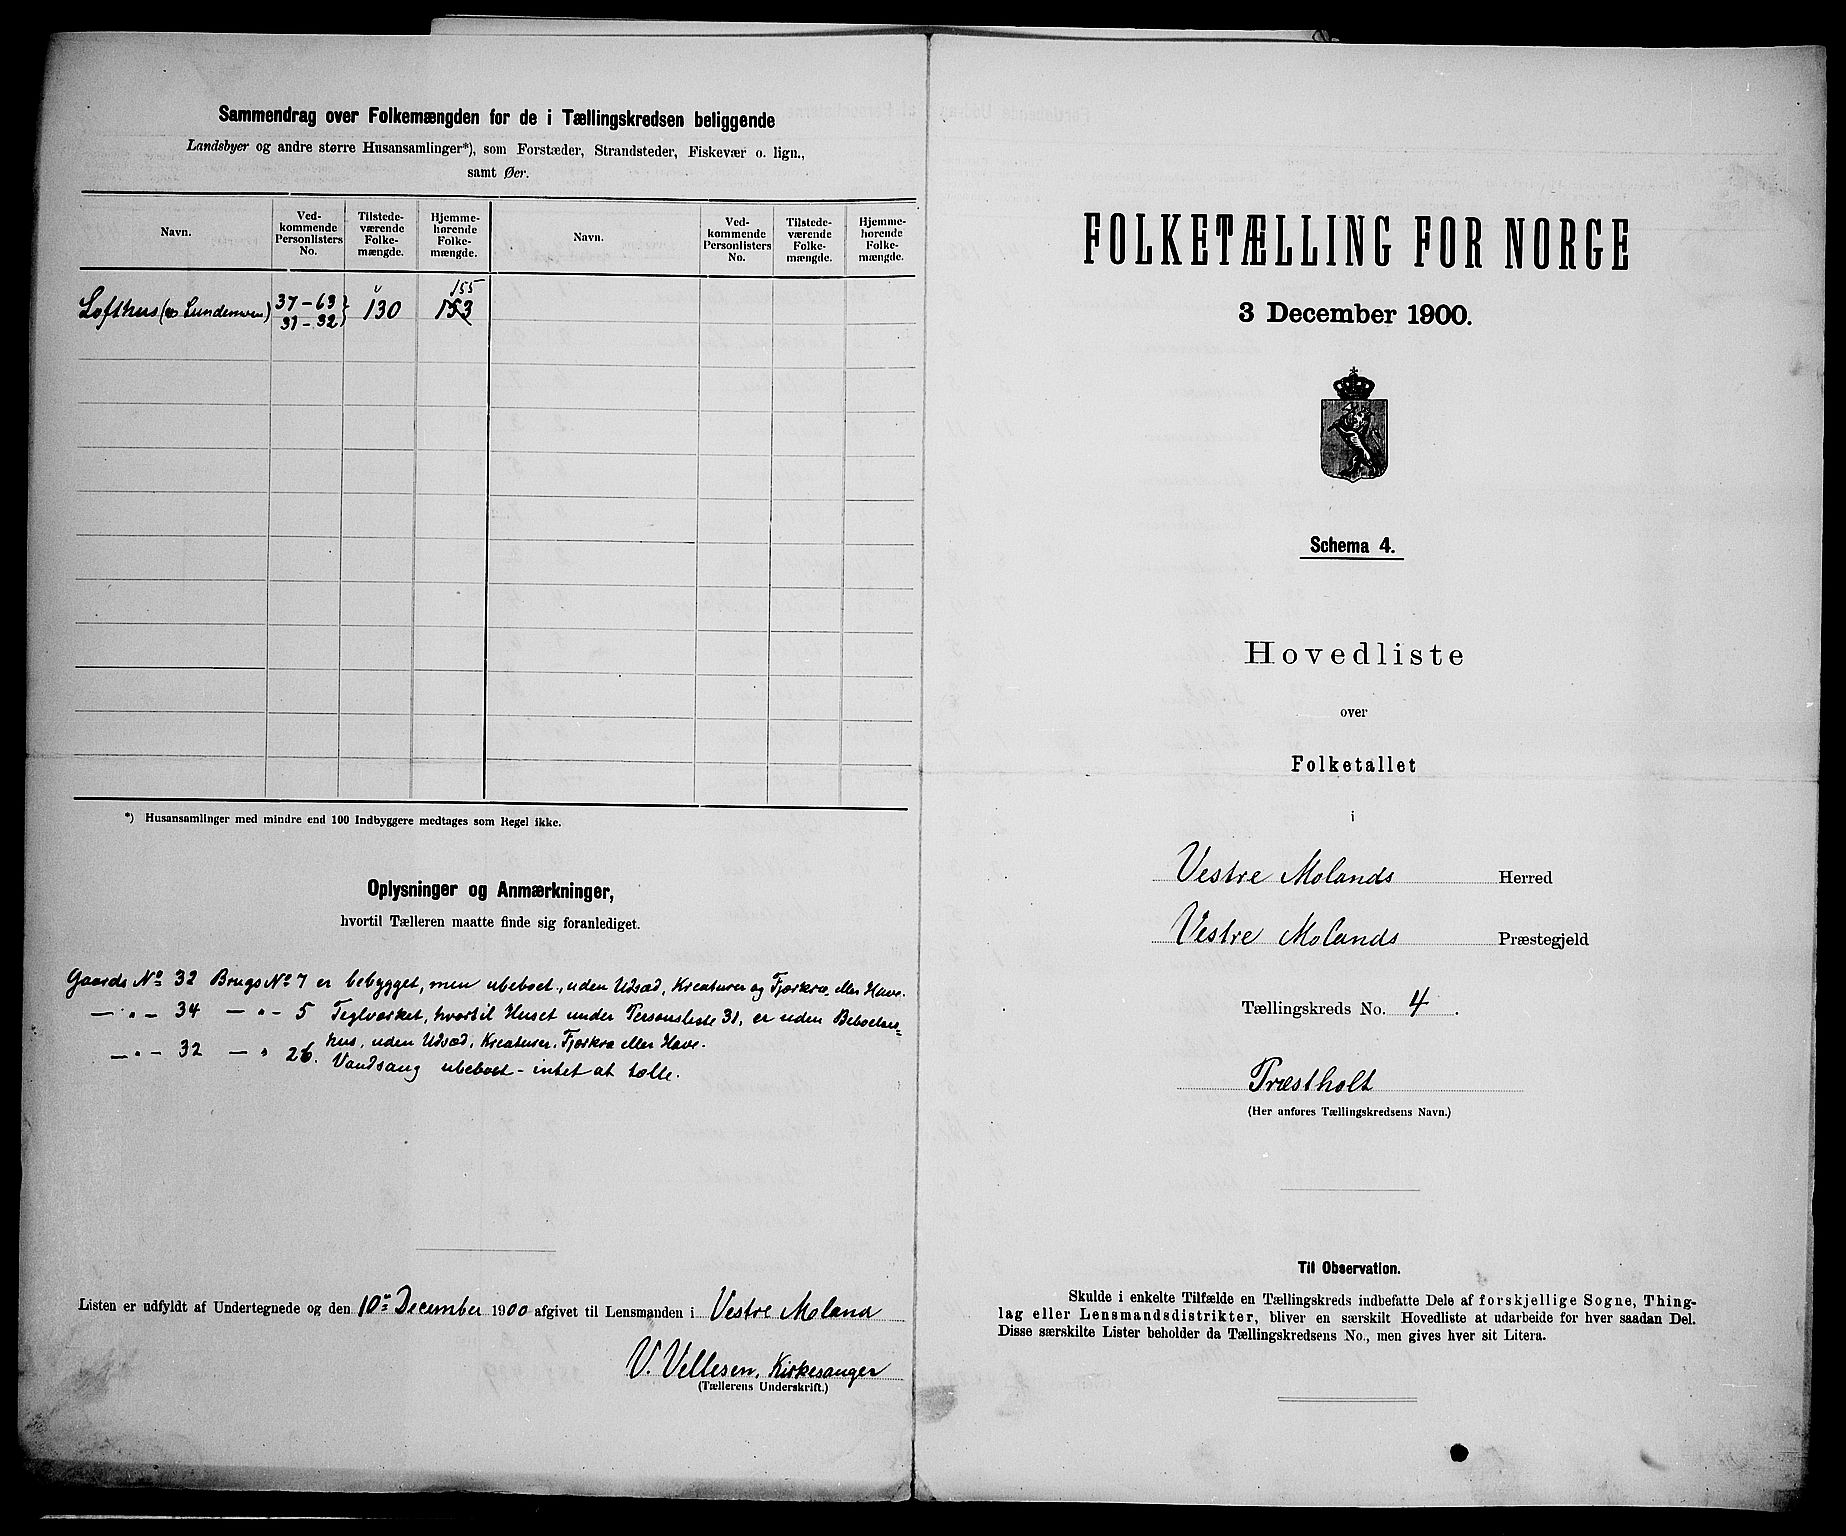 Sammendrag over Folkemængden for de i Tællingskredsen beliggende
Landsbyer og andre større Husansamlinger*), som Forstæder, Strandsteder, Fiskevær o. lign.,
samt Øer.
Navn.
Ved-
kommende
Personlisters
No.
Tilstede-
værende
Folke-
mængde.
Hjemme-
hørende
Folke-
mængde.
Navn.
Ved-
kommende
Personlisters
No.
Tilstede-
værende
Folke-
mængde.
Hjemme-
hørende
Folke-
mængde.
155
Lofthus (Lundemoen) 37-63 } 130 153
31-32
*) Husansamlinger med mindre end 100 Indbyggere medtages som Regel ikke.
Oplysninger og Anmærkninger,
hvortil Tælleren maatte finde sig foranlediget.
Gaards No 32 Brugs No 7 er bebygget, men ubeboet, uden Udsæd, Kreaturer og Fjærkræ, eller Have.
— " — 34 — " — 5 Teglværket, hvortil Huset under Personsliste 31, er uden Beboelses=
hus, uden Udsæd, Kreaturer, Fjærkræ eller Have.
— " — 32 — " 26. Vandsang ubeboet - intet at tælle.
Listen er udfyldt af Undertegnede og den 10de December 1900 afgivet til Lensmanden i Vestre Moland
V. Vellesen, Kirkesanger
(Tællerens Underskrift.)
FOLKETÆLLING FOR NORGE
3 December 1900.
Schema 4.
Hovedliste
over
Folketallet
i
Vestre Molands Herred
Vestre Molands Præstegjeld
Tællingskreds No. 4.
Præstholt
(Her anføres Tællingskredsens Navn.)
Til Observation.
Skulde i enkelte Tilfælde en Tællingskreds indbefatte Dele af forskjellige Sogne, Thing-
lag eller Lensmandsdistrikter, bliver en særskilt Hovedliste at udarbeide for hver saadan Del.
Disse særskilte Lister beholder da Tællingskredsens No., men gives hver sit Litera.